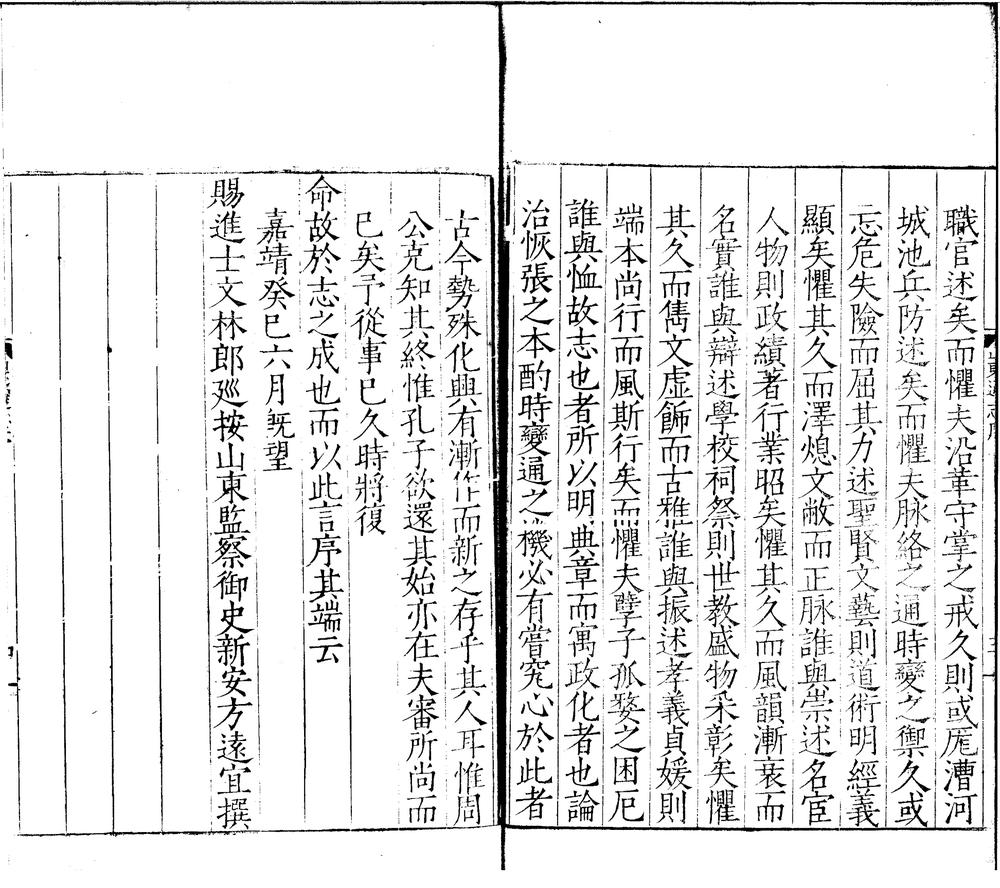 職官述矣而懼夫沿革守掌之戒久則或厖漕河
城池兵防述矣而懼夫脉絡之通時變之禦久或
忘危失險而屈其力述聖賢文藝則道術明經義
顯矣懼其久而澤熄文敝而正脉誰與崇述名宦
人物則政績著行業昭矣懼其久而風韻漸衰而
名實誰與辯述學校祠祭則世教盛物采彰矣懼
其久而雋文虛飾而古雅誰與振述孝義貞媛則
端本尚行而風斯行矣而懼夫孽子孤嫠之困厄
誰與恤故志也者所以明典章而寓政化者也論
治恢張之本酌時變通之機必有嘗究心於此者
古今勢殊化興有漸作而新之存乎其人耳惟周
公克知其終惟孔子欲還其始亦在夫審所尚而
已矣予從事已久時將復
命故於志之成也而以此言序其端云
嘉靖癸巳六月既望
賜進士文林郎廵按山東監察御史新安方遠宜撰